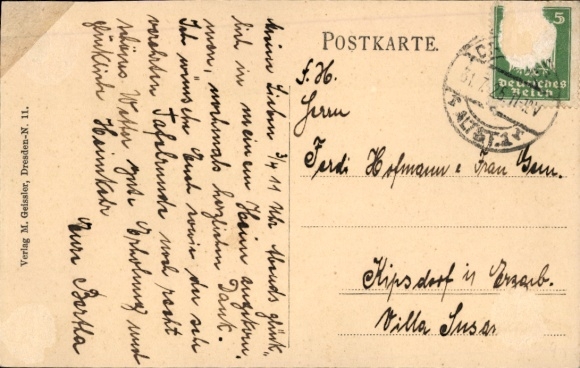 Meine Lieben 3/4 11 Uhr Abends glück-
lich in meinem Heim angekom-
men, nochmals herzlichen Dank.
Ich wünsche Euch sowie der sehr
verehrten Tafelrunde noch recht
schönes Wetter gute Erholung und
glückliche Heimkehr
Eure Bertha
POSTKARTE.
Herrn
Ferdi Hofmann & Frau Gem.
Kipsdorf i Erzgeb.
Villa Susa
5
Deutsches
Reich
ALTST. 1
Verlag M. Geissler, Dresden-N. 11.